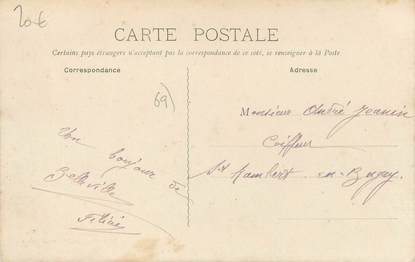 20€
CARTE POSTALE
Certains pays étrangers n'acceptent pas la correspondance de ce côté, se renseigner à la Poste
Correspondance
Adresse
69)
Un bonjour de
Belleville
Monsieur André Jeanin
Coiffeur
St Rambert en Bugey